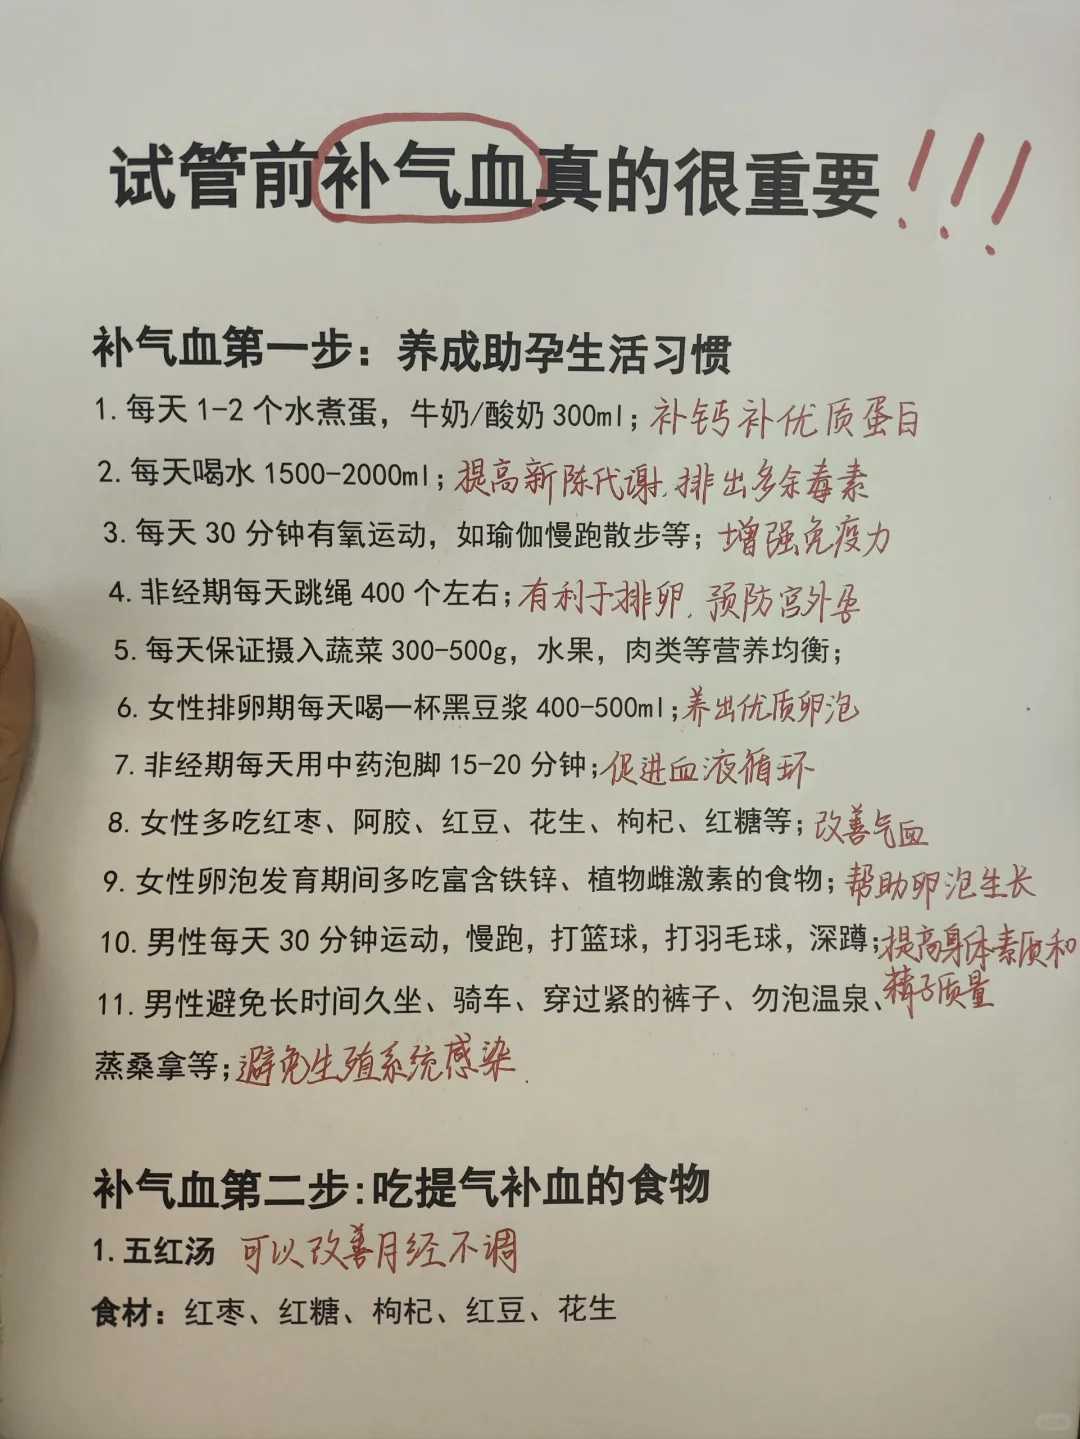 试管前补气血真的很重要!!!
补气血第一步：养成助孕生活习惯
1.每天1-2个水煮蛋，牛奶/酸奶300ml；补钙补优质蛋白
2.每天喝水1500-2000ml；提高新陈代谢，排出多余毒素
3.每天30分钟有氧运动，如瑜伽慢跑散步等；增强免疫力
4.非经期每天跳绳400个左右；有利于排卵，预防宫外孕
5.每天保证摄入蔬菜300-500g，水果，肉类等营养均衡；
6.女性排卵期每天喝一杯黑豆浆400-500ml；养出优质卵泡
7.非经期每天用中药泡脚15-20分钟；促进血液循环
8.女性多吃红枣、阿胶、红豆、花生、枸杞、红糖等；改善气血
9.女性卵泡发育期间多吃富含铁锌、植物雌激素的食物；帮助卵泡生长
10.男性每天30分钟运动，慢跑，打篮球，打羽毛球，深蹲；提高身体素质和
精子质量
11.男性避免长时间久坐、骑车、穿过紧的裤子、勿泡温泉、
蒸桑拿等；避免生殖系统感染.
补气血第二步:吃提气补血的食物
1.五红汤 可以改善月经不调
食材：红枣、红糖、枸杞、红豆、花生